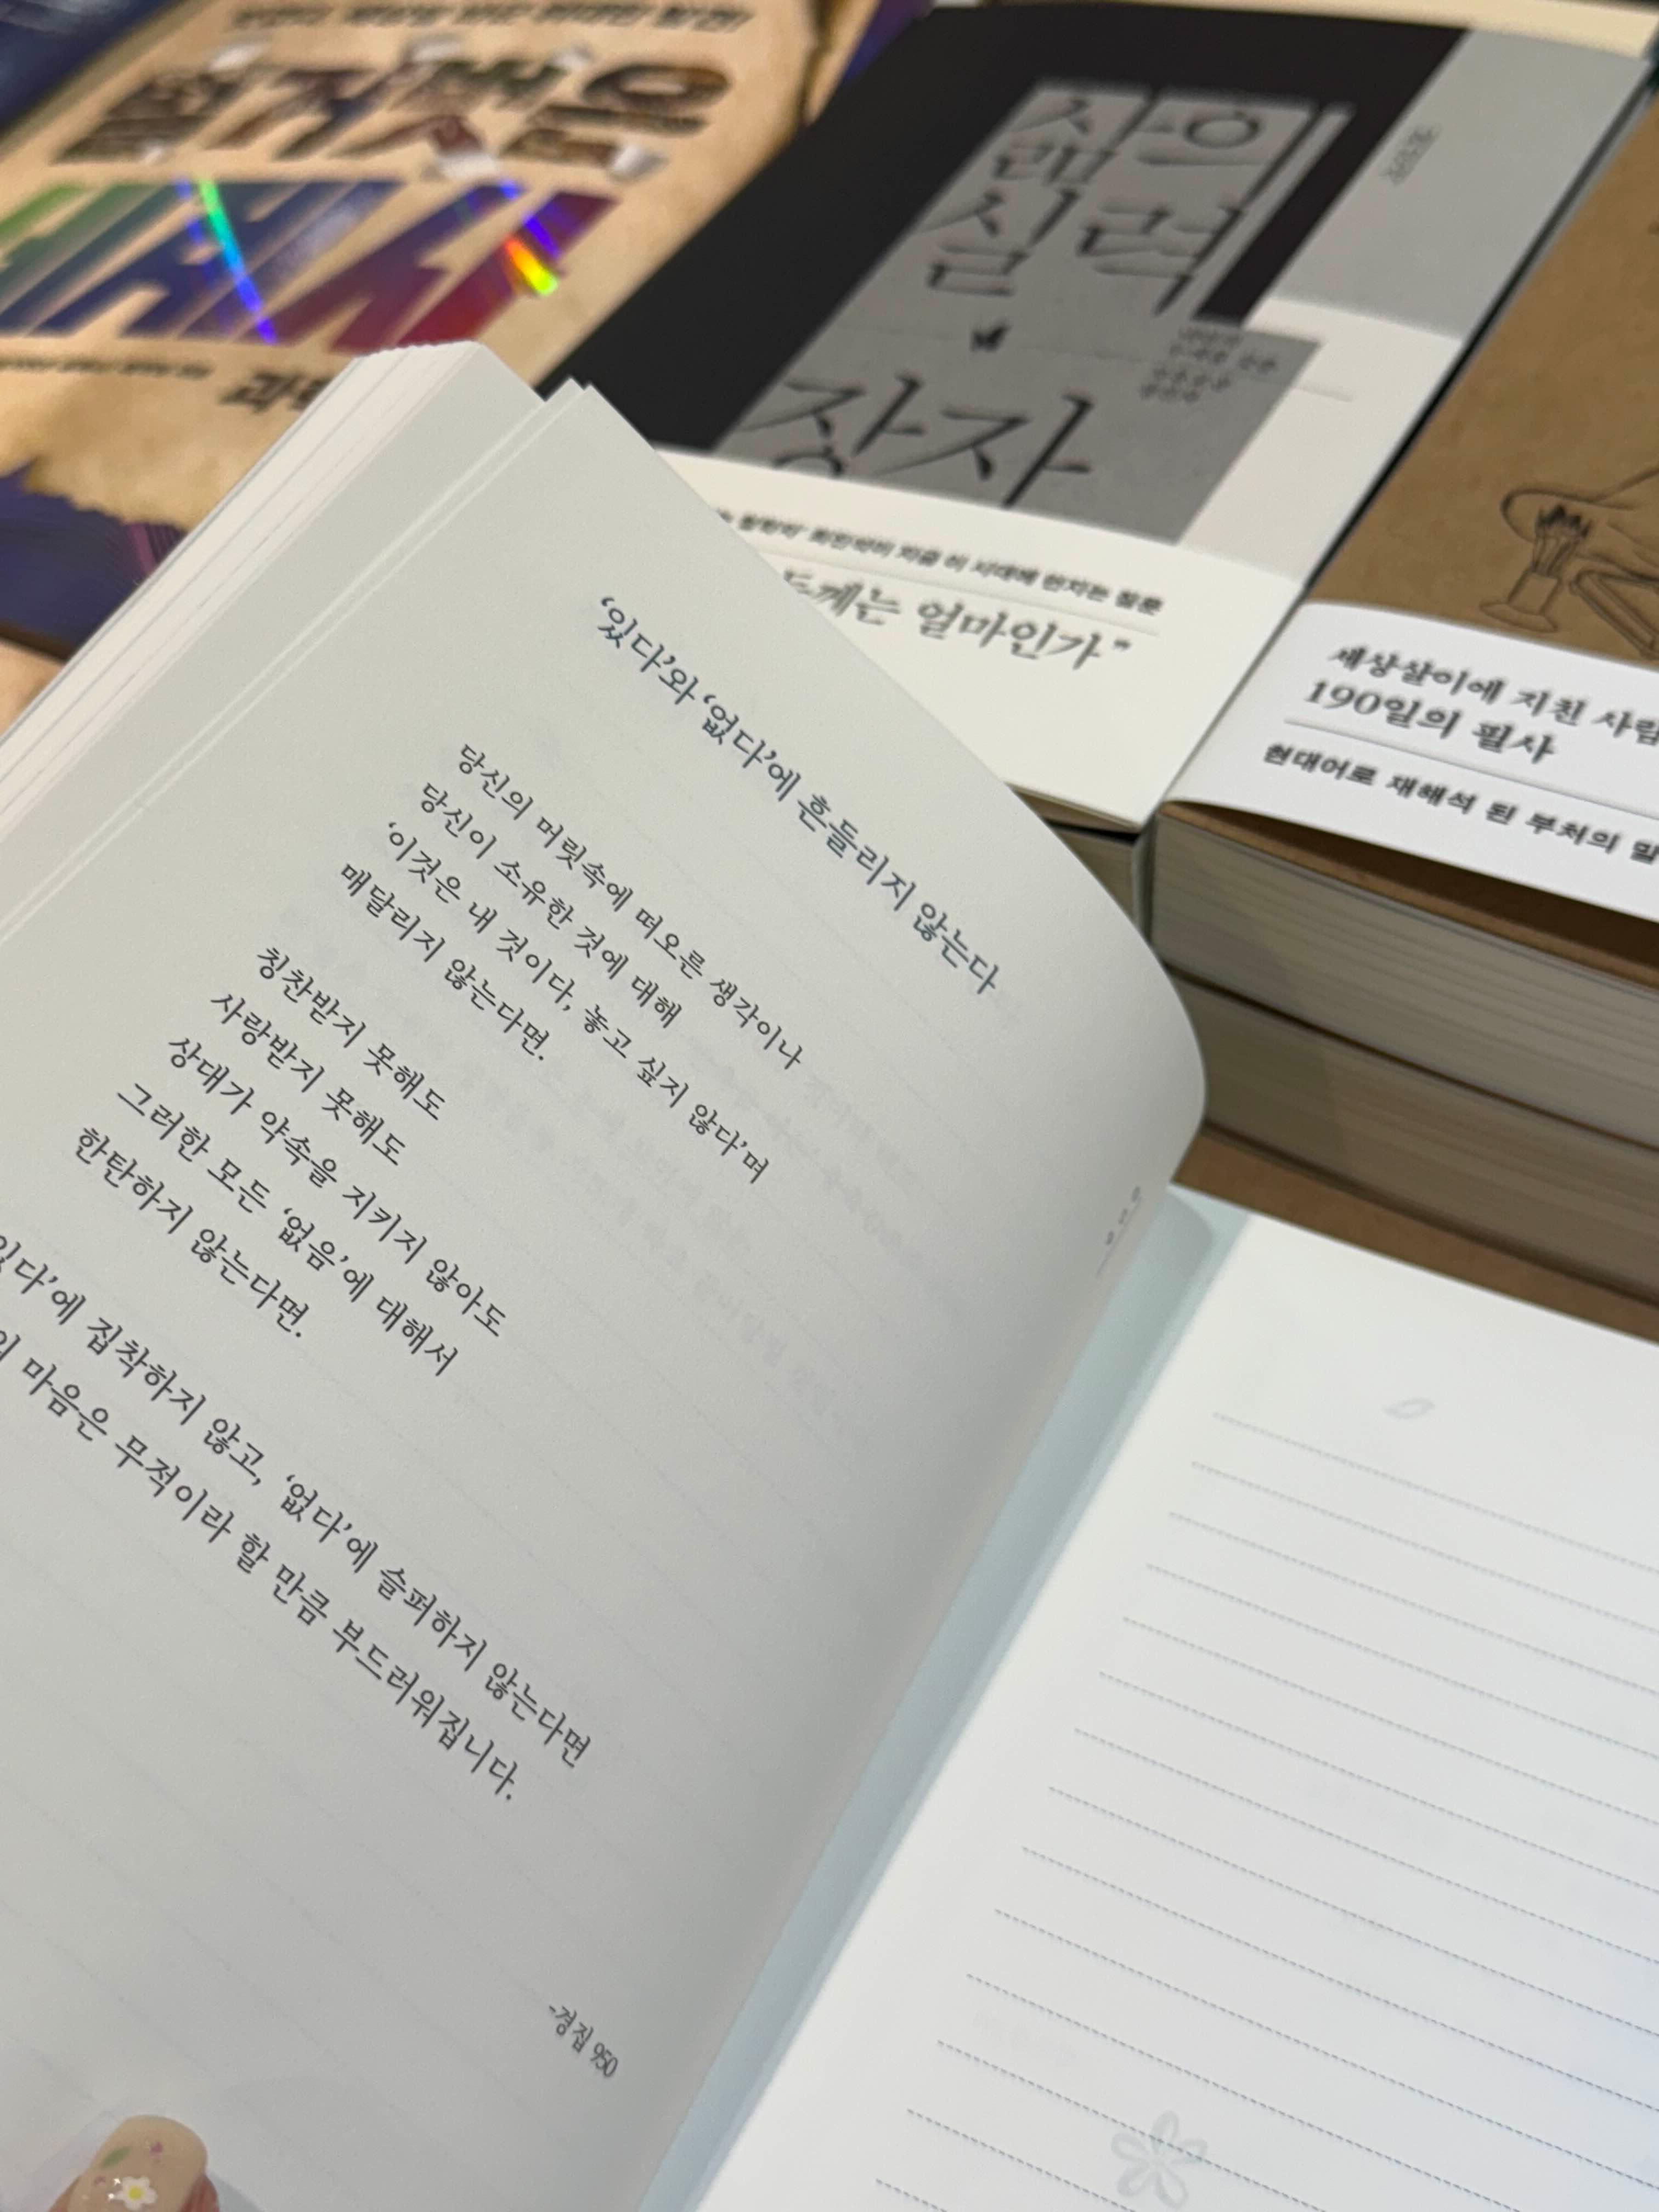 과학
삶의
실력
장자
들께는 얼마인가”
세상살이에 지친 사람
190일의 필사
현대어로 재해석 된 부처의 말
‘있다’와 ‘없다’에 흔들리지 않는다
당신의 머릿속에 떠오른 생각이나
당신이 소유한 것에 대해
‘이것은 내 것이다, 놓고 싶지 않다’며
매달리지 않는다면.
칭찬받지 못해도
사랑받지 못해도
상대가 약속을 지키지 않아도
그러한 모든 ‘없음’에 대해서
한탄하지 않는다면.
있다’에 집착하지 않고, ‘없다’에 슬퍼하지 않는다면
마음은 무적이라 할 만큼 부드러워집니다.
-경집 950